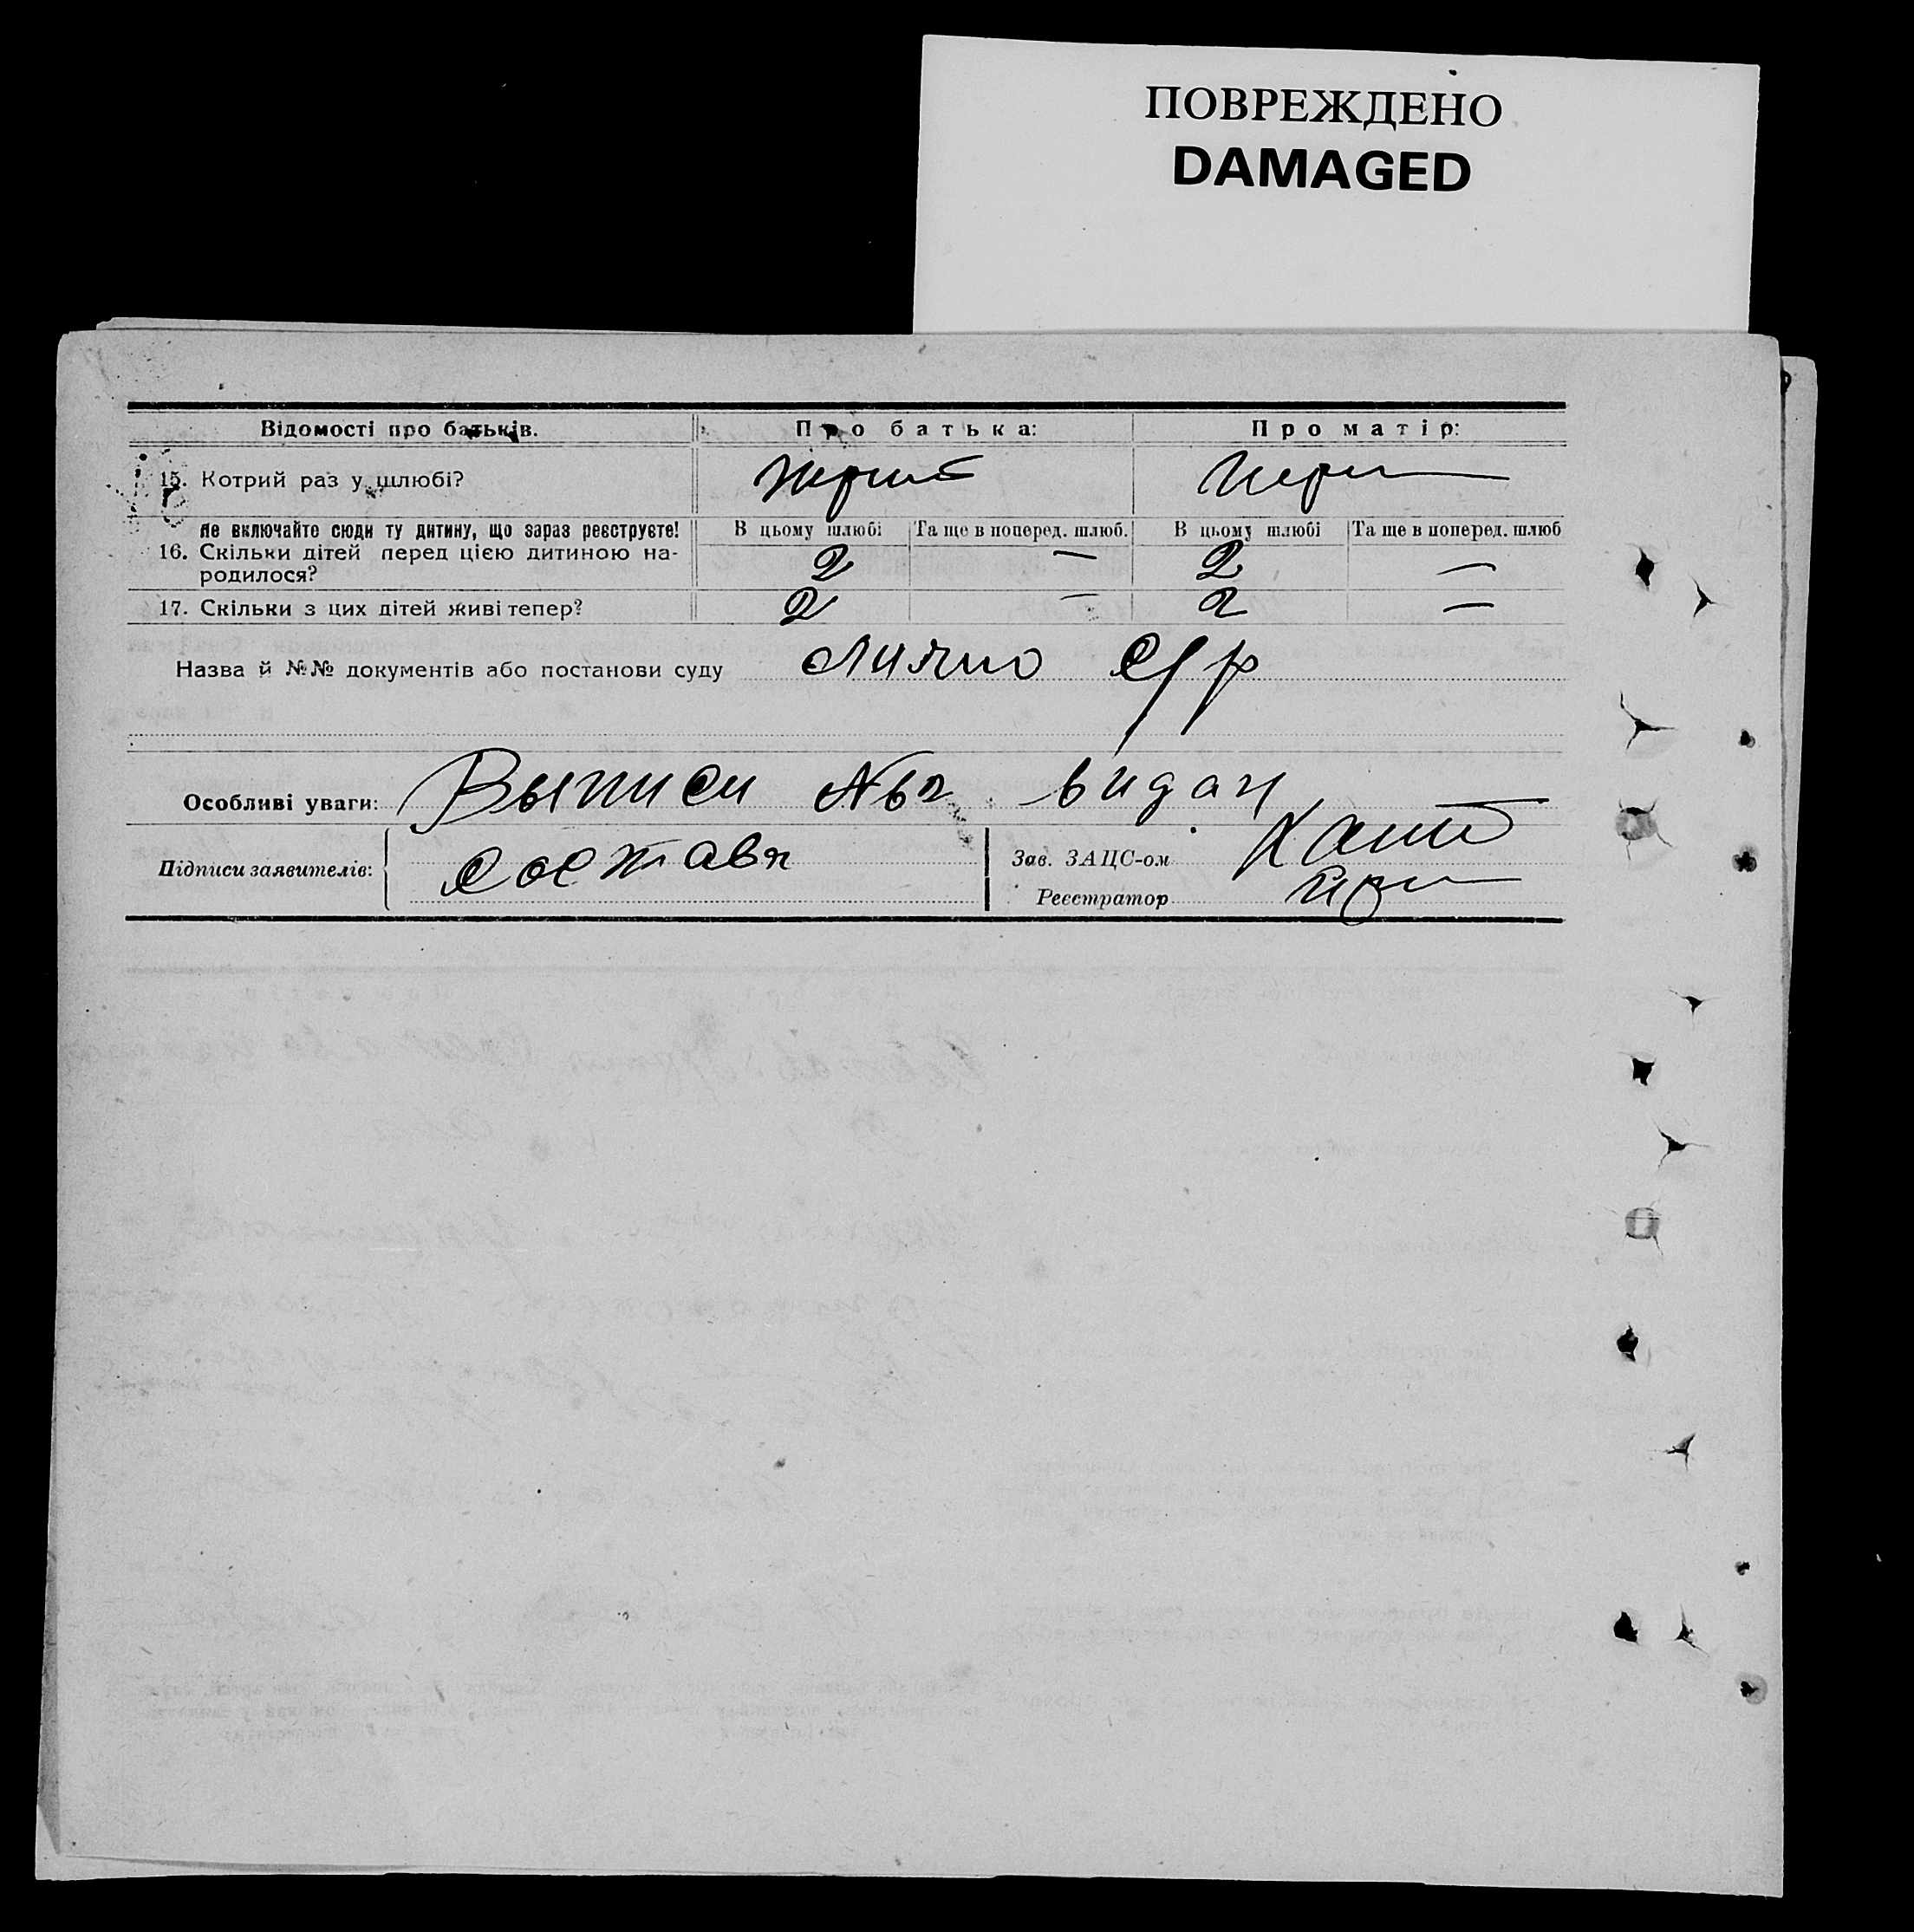 ПОВРЕЖДЕНО
DAMAGED
Відомості про батьків. Про батька: Про матір:
15. Котрий раз у шлюбі?
Не включайте сюди ту дитину, що зараз реєструєте! В цьому шлюбі Та ще в поперед. шлюб. В цьому шлюбі Та ще в поперед. шлюб
16. Скільки дітей перед цією дитиною на- 2 — 2 —
родилося?
17. Скільки з цих дітей живі тепер? 2 — 2 —
Назва й №№ документів або постанови суду
Особливі уваги: Выписи видан
Підписи заявителів: Зав. ЗАЦС-ом
Реєстратор